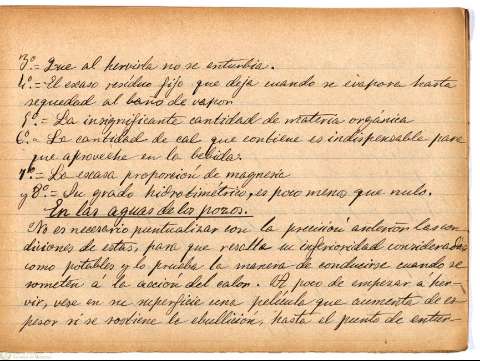 3º.= Que al hervirla no se enturbia.
4º.= El escaso residuo fijo que deja cuando se evapora hasta
sequedad al baño de vapor
5º.= La insignificante cantidad de materia orgánica
6º.= La cantidad de cal que contiene es indispensable para
que aproveche en la bebida.
7º.= La escasa proporción de magnesia
y 8º.= Su grado hidrotimétrico, es poco menos que nulo.
En las aguas de los pozos.
No es necesario puntualizar con la precisión anterior las con-
diciones de estas, para que resalte su inferioridad consideradas
como potables y lo prueba la manera de conducirse cuando se
someten á la acción del calor. A poco de empezar á her-
vir, vese en su superficie una película que aumenta de es-
pesor si se sostiene la ebullición, hasta el punto de entur-